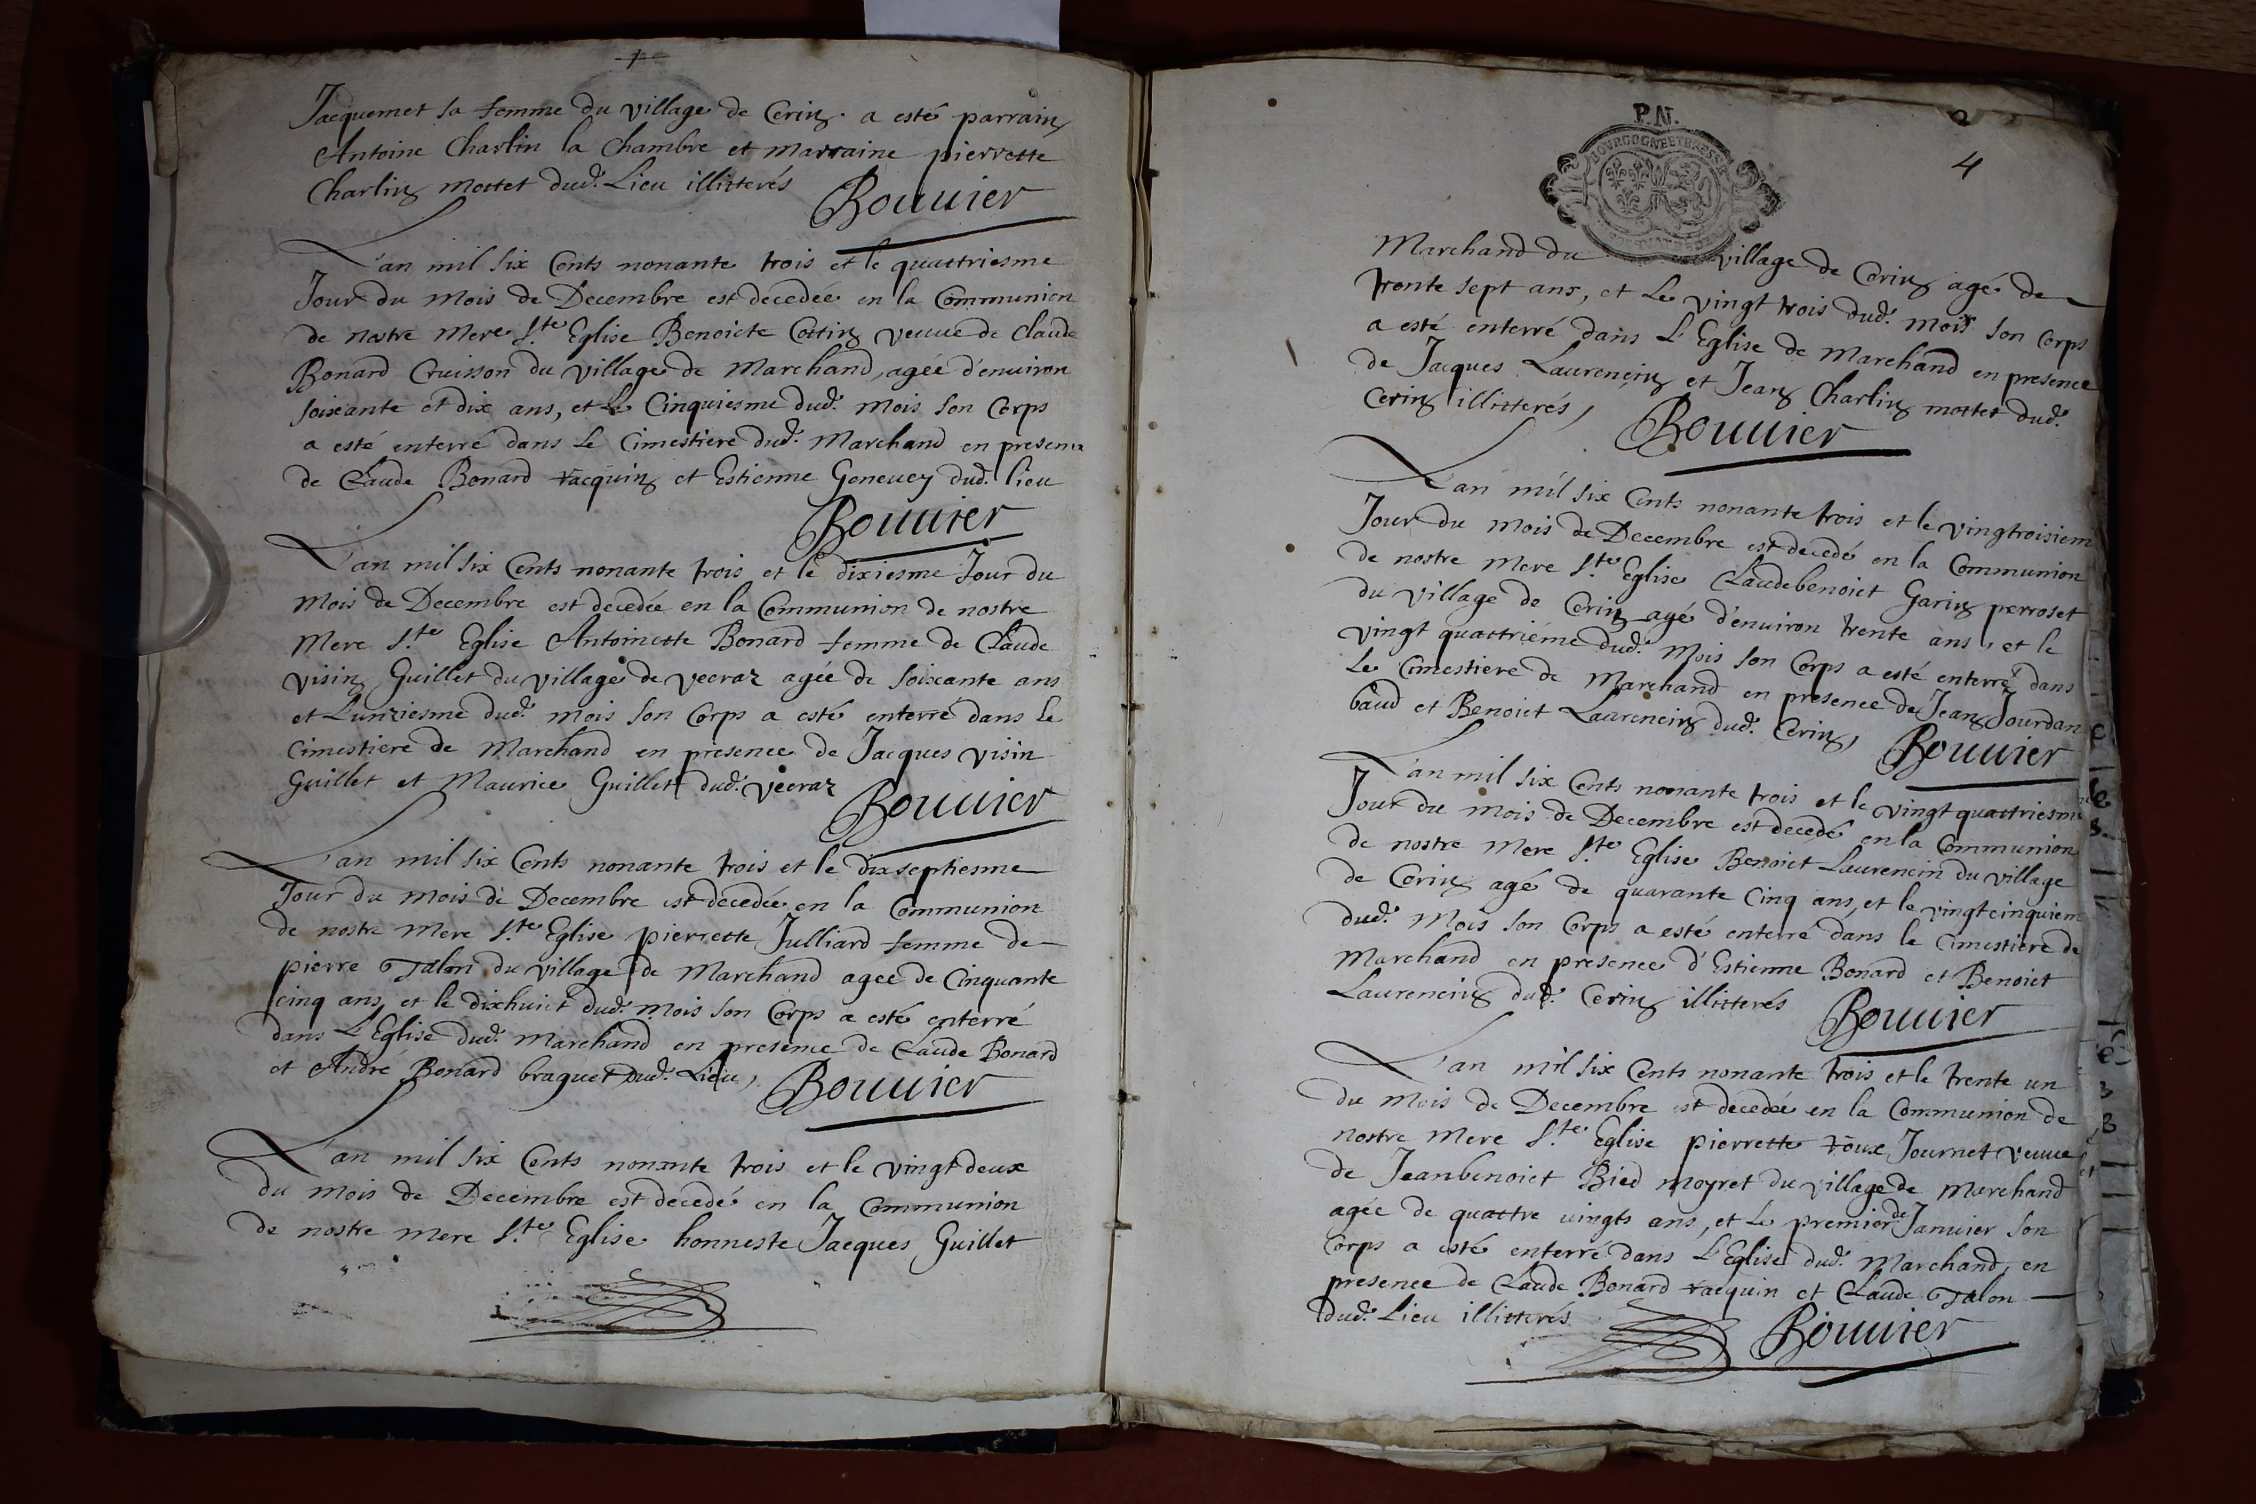 Jacquemet sa femme du village de Cerin a esté parrain
Antoine Charlin la Chambre et marraine pierrette
Charlin mottet dud. Lieu illitterés
Bouuier
L'an mil six Cents nonante trois et le quattriesme
Jour du mois de Decembre est decedée en la Communion
de nostre Mere Ste Eglise Benoicte Cottin veuue de Claude
Bonard Cruisson du village de Marchand, agée d'enuiron
soixante et dix ans, et le Cinquiesme dud. mois son Corps
a esté enterré dans le Cimestiere dud. Marchand en presence
de Claude Bonard racquin et Estienne Geneuey dud. lieu
Bouuier
L'an mil six Cents nonante trois et le dixiesme Jour du
Mois de Decembre est decedée en la Communion de nostre
Mere Ste Eglise Antoinette Bonard femme de Claude
visin Guillet du village de vecraz agée de soixante ans
et Lunziesme dud. mois son Corps a esté enterré dans le
Cimestiere de Marchand en presence de Jacques visin
Guillet et Maurice Guillet dud. vecraz
Bouuier
L'an mil six Cents nonante trois et le dix septiesme
Jour du mois de Decembre est decedée en la Communion
de nostre Mere Ste Eglise pierrette Julliard femme de
pierre Talon du village de Marchand agee de Cinquante
cinq ans et le dixhuict dud. mois son Corps a esté enterré
dans L'Eglise dud. Marchand en presence de Claude Bonard
et André Bonard braguet dud. Lieu,
Bouuier
L'an mil six Cents nonante trois et le vingt deux
du mois de Decembre est decedé en la Communion
de nostre mere Ste Eglise honneste Jacques Guillet
P.N.
BOURGOGNE ET BRESSE
4
Marchand du village de Cerin agé de
trente sept ans, et le vingt trois dud. mois son Corps
a esté enterré dans L'Eglise de Marchand en presence
de Jacques Laurencin et Jean Charlin mottet dud.
Cerin illitterés,
Bouuier
L'an mil six Cents nonante trois et le vingtroisiem
Jour du mois de Decembre est decedé en la Communion
de nostre Mere Ste Eglise Claudebenoict Garin perroset
du village de Cerin agé d'enuiron trente ans, et le
vingt quattriéme dud. mois son Corps a esté enterré dans
le Cimestiere de Marchand en presence de Jean Jourdan
baud et Benoict Laurencin dud. Cerin,
Bouuier
L'an mil six Cents nonante trois et le vingt quattriesme
Jour du mois de Decembre est decedé en la Communion
de nostre Mere Ste Eglise Benoict Laurencin du village
de Cerin agé de quarante Cinq ans, et le vingtcinquiem
dud. Mois son Corps a esté enterré dans le Cimestiere de
Marchand en presence d'Estienne Bonard et Benoict
Laurencin dud. Cerin illitterés
Bouuier
L'an mil six Cents nonante trois et le trente un
du mois de Decembre est decedée en la Communion de
nostre Mere Ste Eglise pierrette roux Journet veuue
de Jeanbenoict Bied moyret du village de Marchand
agée de quattre uingts ans, et le premier de Januier son
Corps a esté enterré dans L'Eglise dud. Marchand, en
presence de Claude Bonard racquin et Claude Talon
dud. Lieu illitterés
Bouuier